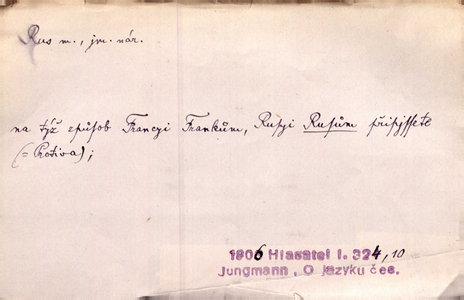 Rus m., jm. nár.
na týž způsob Francyi Frankům, Rusyi Rusům připjssete
(= Protiva);
1806 Hlasatel I. 324, 10
Jungmann, O jazyku čes.